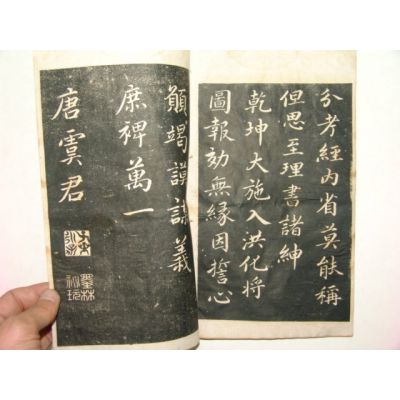 分考經内省莫能稱
但思至理書諸紳
乾坤大施入洪化將
圖報効無緣因誓心
顓竭謨謀義
庶裨萬一
唐虞君